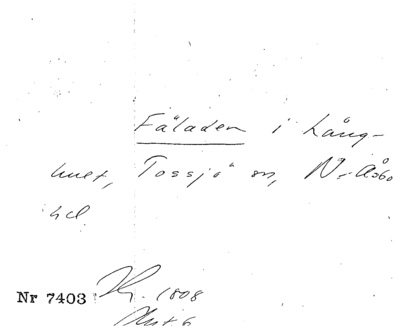 Fäladen i Lång-
huet, Tossjö sn, N. Åsbo
hd
Nr 7403
1808